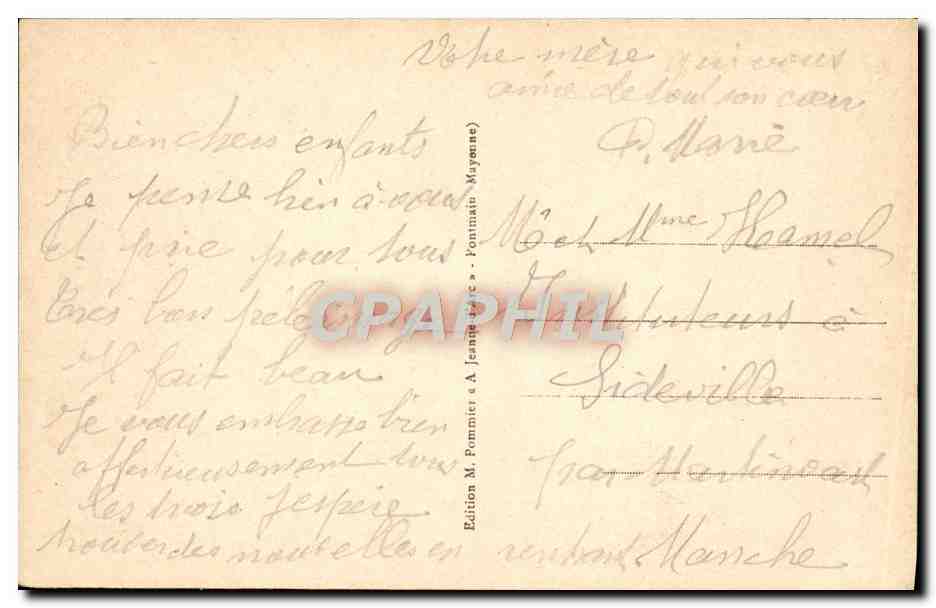 Bien chers enfants
Je pense bien à vous
et prie pour tous
Très bon pélerinage
Il fait beau
Je vous embrasse bien
affectueusement tous
les trois J'espère
trouver des nouvelles en
rentrant
Votre mère qui vous
aime de tout son cœur
Marie
Mr et Mme Hamel
Instituteurs à
Sideville
par Martinvast
Manche
Edition M. Pommier « A Jeanne d'Arc » - Pontmain Mayenne)
CPAPHIL